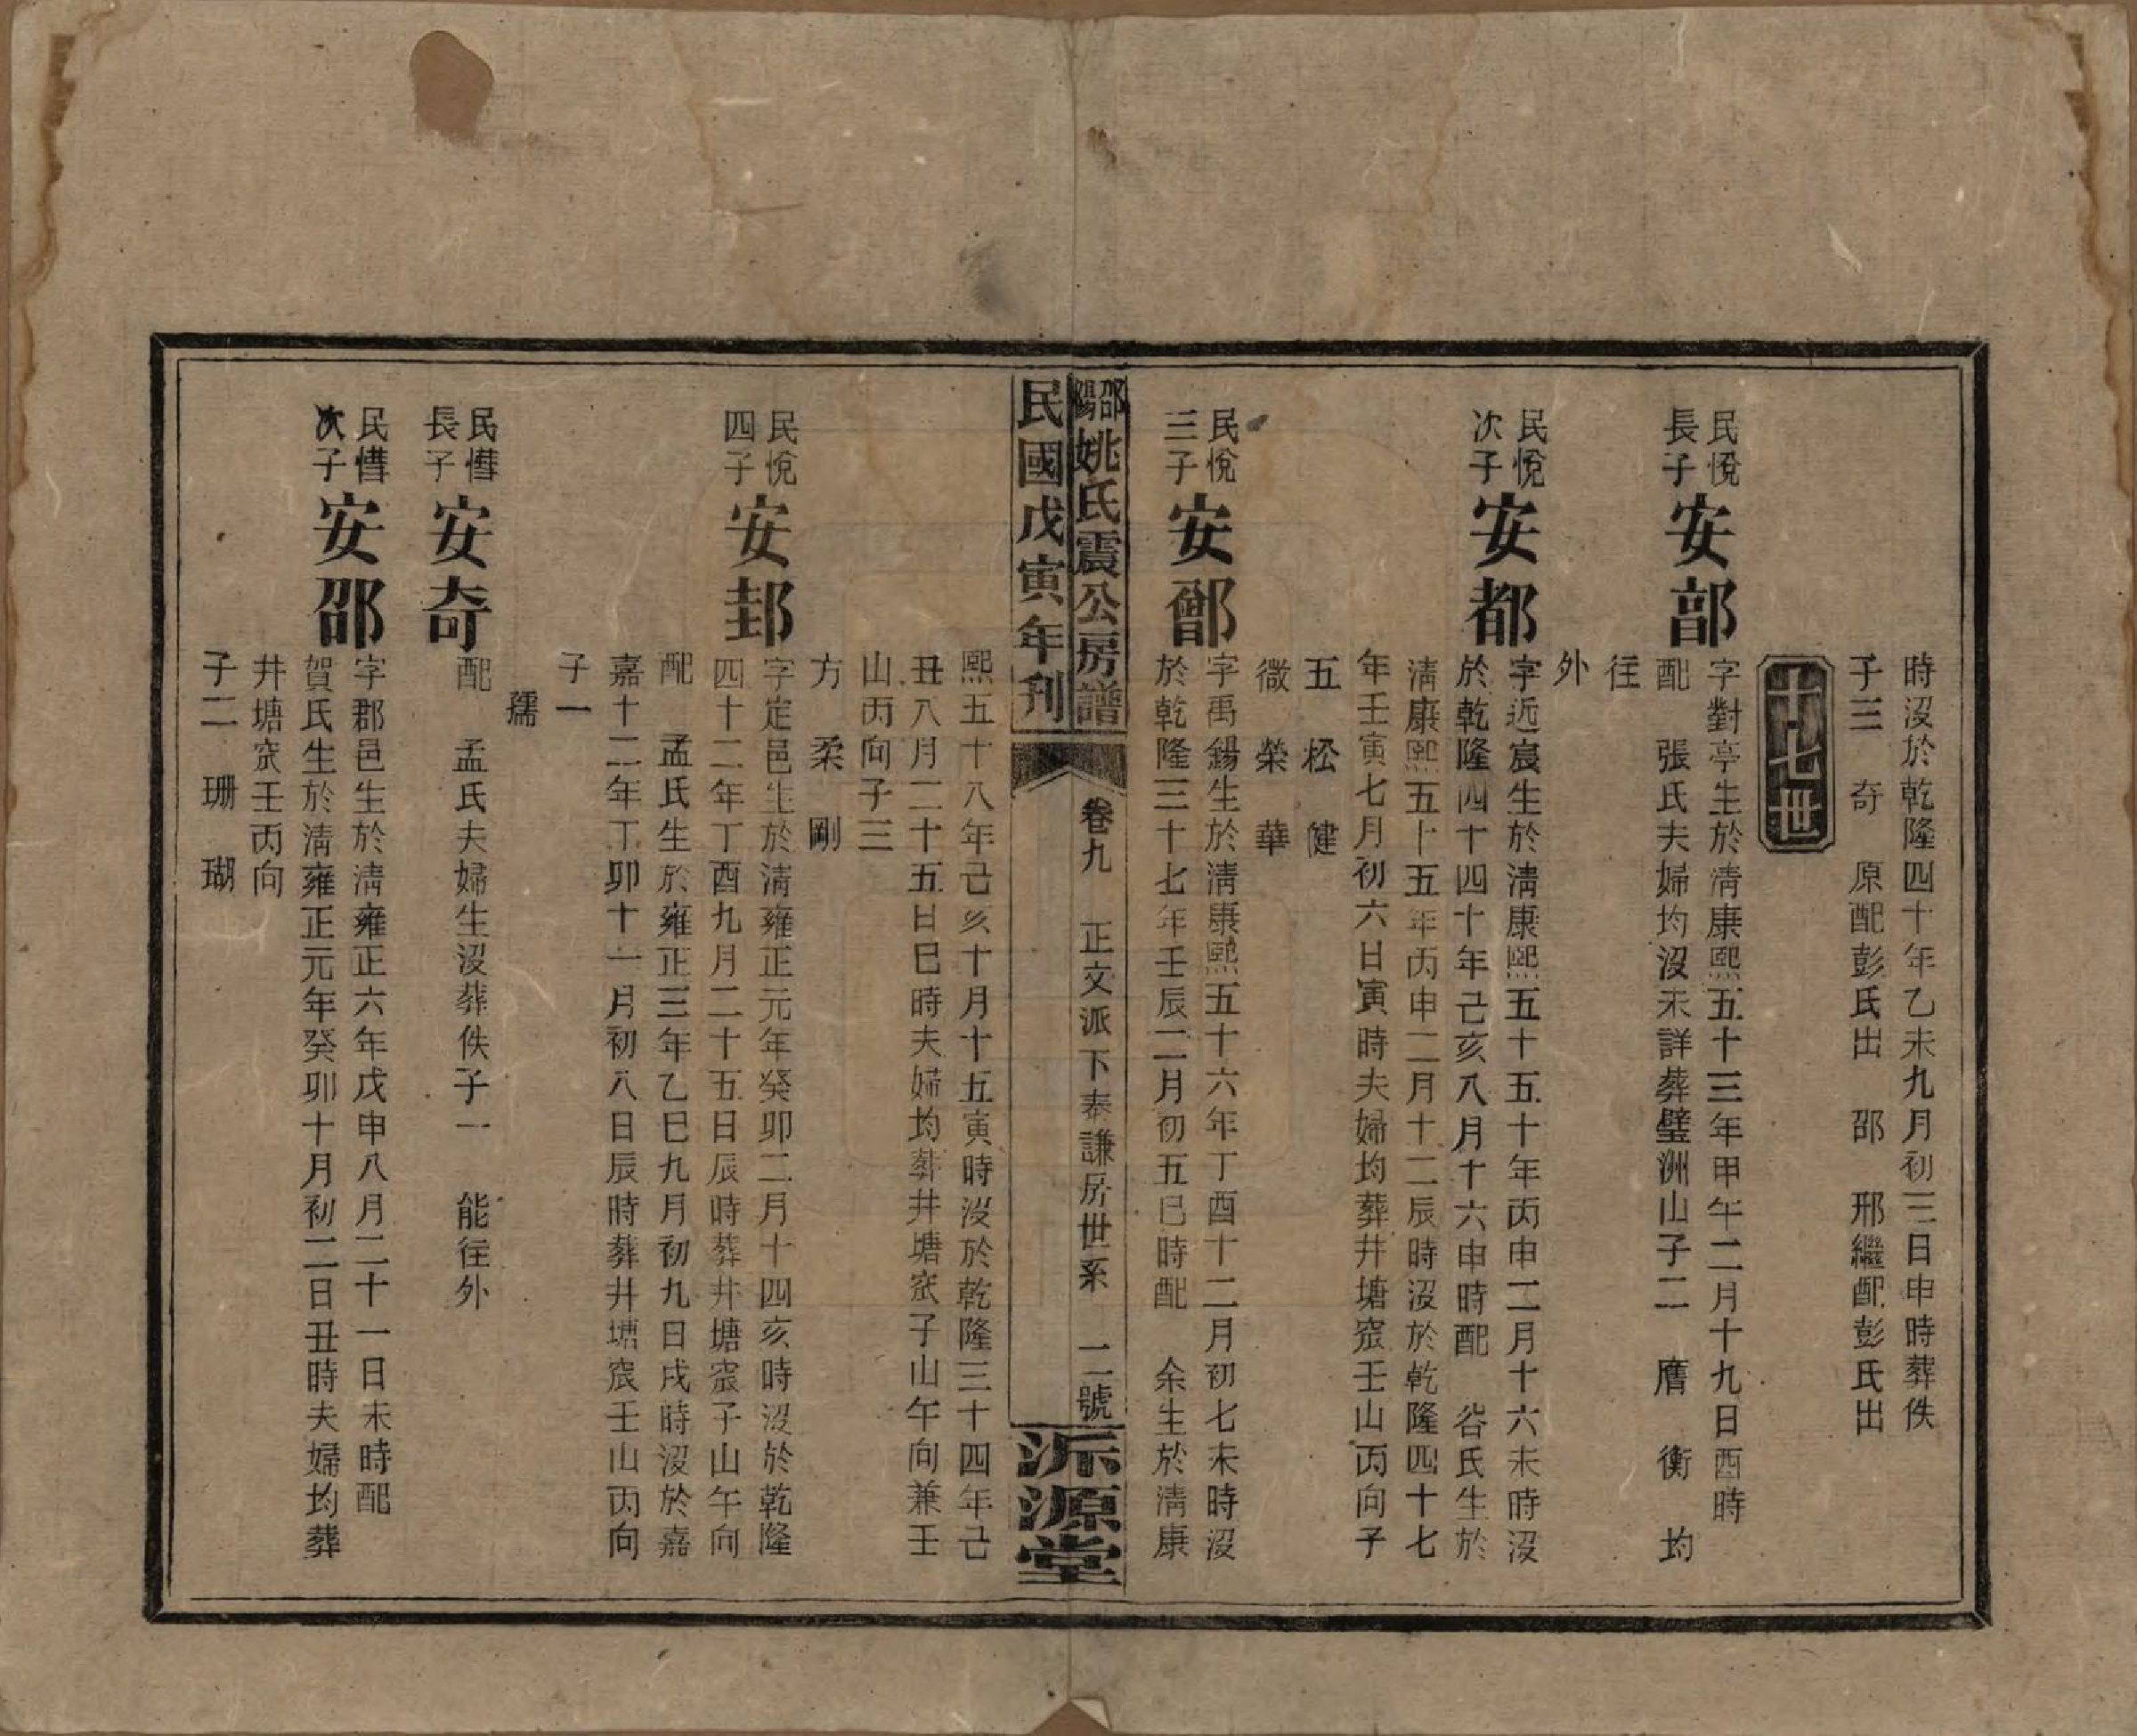 時沒於乾隆四十年乙未九月初三日申時葬佚
子三　奇　原配彭氏出　邵　邢繼配彭氏出
十七世
民悅長子
安部
字對亭生於清康熙五十三年甲午二月十九日酉時
配　張氏夫婦均沒未詳葬璧洲山子二　膺　衡　均
往
外
民悅次子
安都
字近宸生於清康熙五十五十年丙申二月十六未時沒
於乾隆四十四十年己亥八月十六申時配　谷氏生於
清康熙五十五年丙申二月十二辰時沒於乾隆四十七
年壬寅七月初六日寅時夫婦均葬井塘窊壬山丙向子
五　松　健
微　榮　華
民悅三子
安鄫
字禹錫生於清康熙五十六年丁酉十二月初七未時沒
於乾隆三十七年壬辰二月初五巳時配　余生於清康
邵陽姚氏震公房譜　卷九　正文派下泰謙房世系　二號
民國戊寅年刊　派源堂
熙五十八年己亥十月十五寅時沒於乾隆三十四年己
丑八月二十五日巳時夫婦均葬井塘窊子山午向兼壬
山丙向子三
方　柔　剛
民悅四子
安邽
字定邑生於清雍正元年癸卯二月十四亥時沒於乾隆
四十二年丁酉九月二十五日辰時葬井塘窊子山午向
配　孟氏生於雍正三年乙巳九月初九日戌時沒於嘉
嘉十二年丁卯十一月初八日辰時葬井塘窊壬山丙向
子一
孺
民懵長子
安奇
配　孟氏夫婦生沒葬佚子一　能往外
民懵次子
安邵
字郡邑生於清雍正六年戊申八月二十一日未時配
賀氏生於清雍正元年癸卯十月初二日丑時夫婦均葬
井塘窊壬丙向
子二　珊　瑚